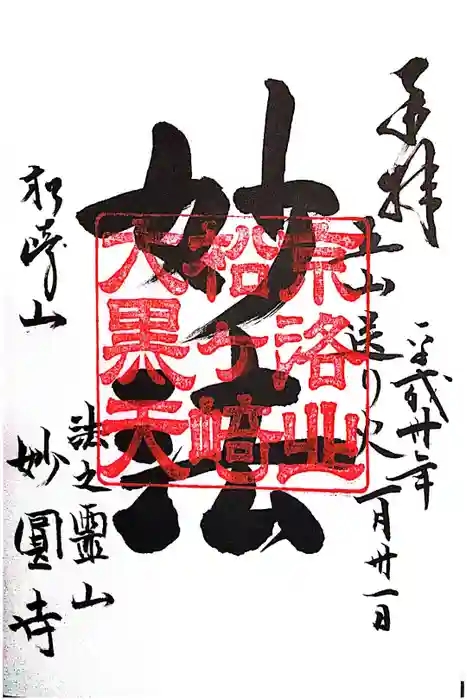 奉拝
五山送り火
平成廿年
一月廿一日
妙法
京洛北
松ヶ崎
大黒天
松崎山
法之靈山
妙圓寺